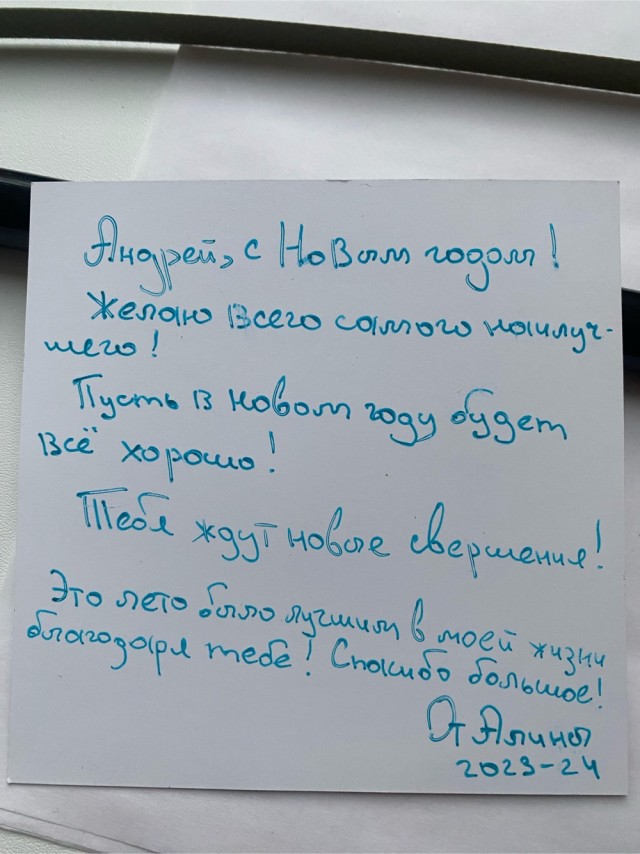 Андрей, с Новым годом!
Желаю всего самого наилуч-
шего!
Пусть в новом году будет
всё хорошо!
Тебя ждут новые свершения!
Это лето было лучшим в моей жизни
благодаря тебе! Спасибо большое!
От Алины
2023-24